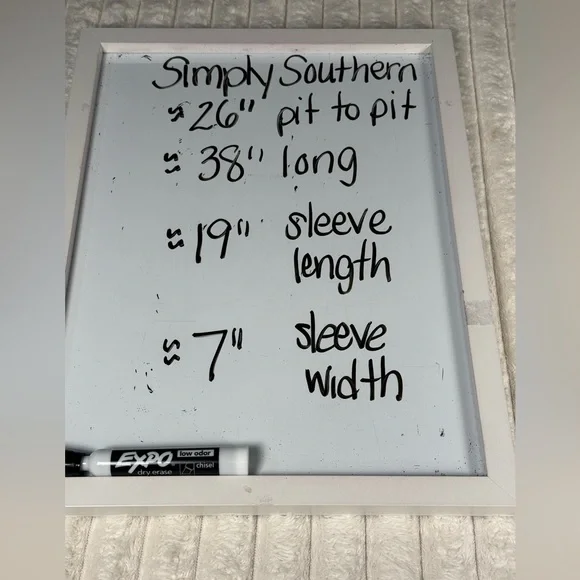 Simply Southern
≈ 26" pit to pit
≈ 38" long
≈ 19" sleeve
length
≈ 7" sleeve
width
EXPO low odor
dry erase chisel